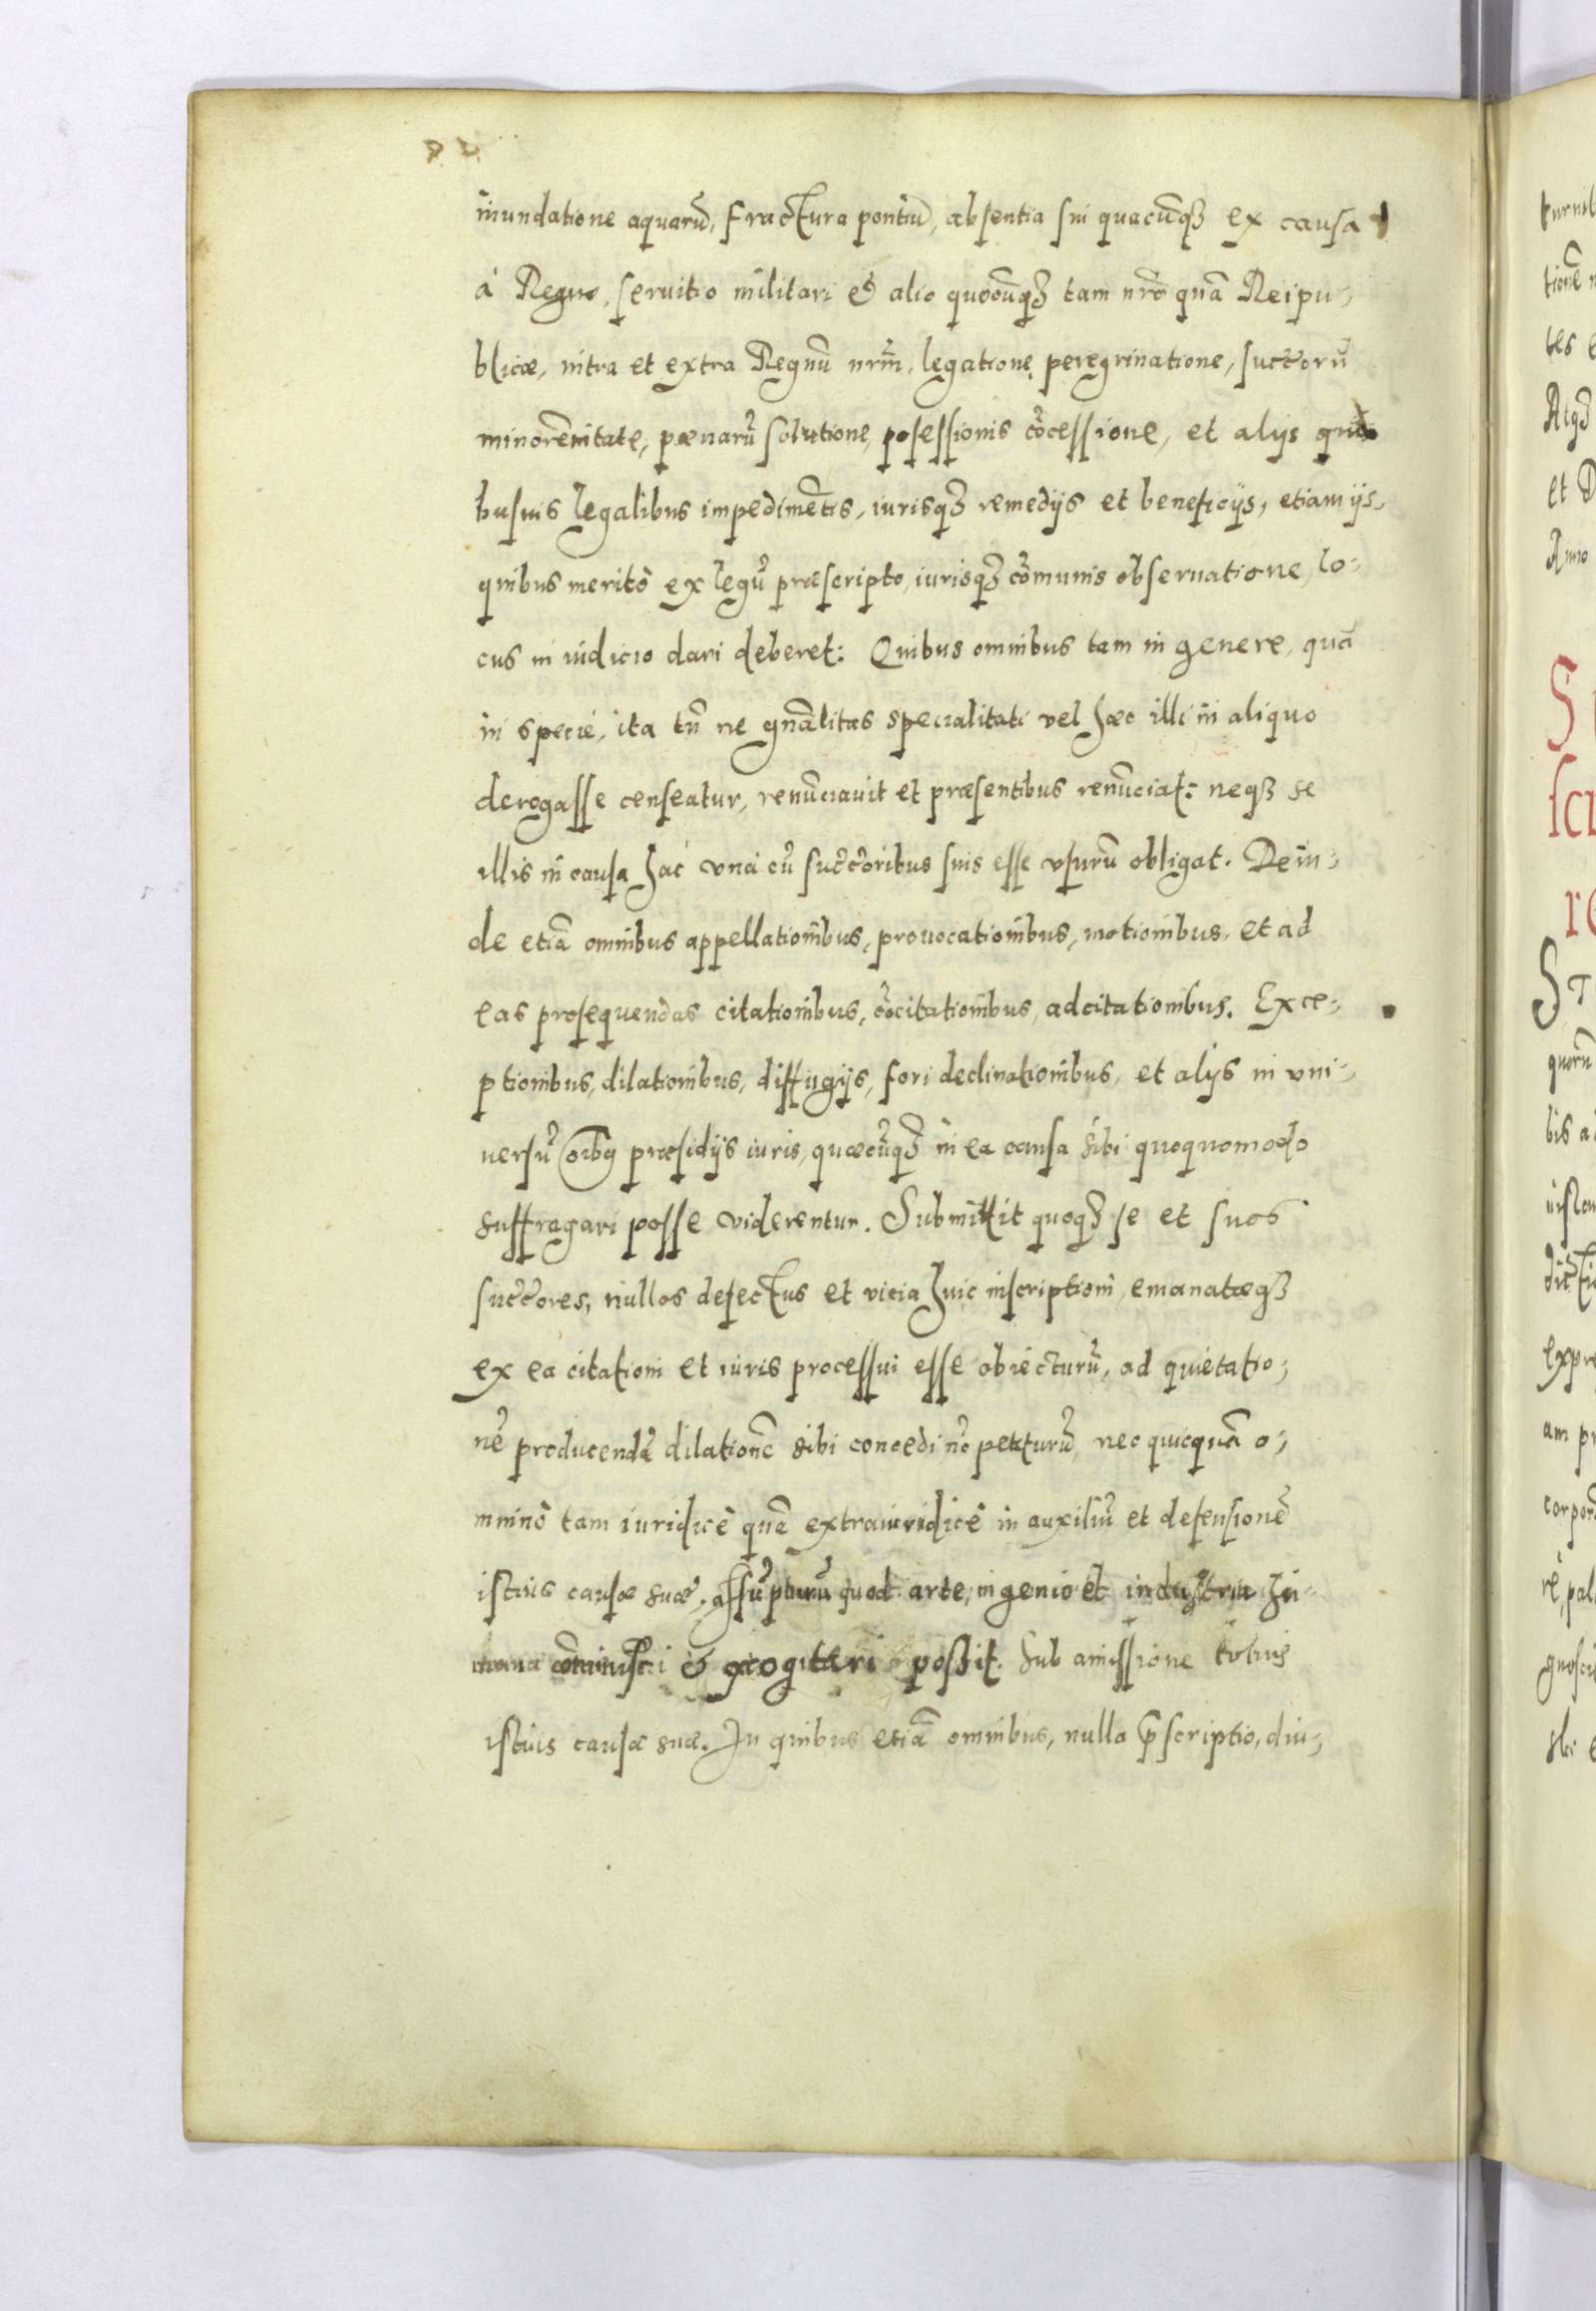 inundatione aquarũ, fractura pontiũ, absentia sui quacũqȝ ex causa
à Regno, seruitio militari & alio quocũqȝ tam nr̃o quã Reipu-
blicæ, intra et extra Regnũ nrm̃, legatione peregrinatione, succ̃orũ
minorẽnitate, pœnarũ solutione, posessionis cõcessione, et alijs qui
busuis legalibus impedimẽtis, iurisqȝ remedijs et beneficijs, etiam ijs,
quibus meritò ex legũ præscripto, iurisqȝ cõmunis obseruatione, lo-
cus in iudicio dari deberet: Quibus omnibus tam in genere, quã
in specie, ita tñ ne gñalitas specialitati vel hæc illi in aliquo
derogasse censeatur, renũciauit et præsentibus renũciat: neqȝ se
illis in causa hac vnà cũ succ̃oribus suis esse vsurũ obligat. Dein-
de etiã omnibus appellationibus, prouocationibus, motionibus, et ad
eas prosequendas citationibus, cõcitationibus, adcitationibus. Exce-
ptionibus, dilationibus, diffugijs, fori declinationibus, et alijs in vni-
uersũ oĩbꝯ præsidijs iuris, quæcũqȝ in ea causa sibi quoquomodo
suffragari posse viderentur. Submittit quoqȝ se et suos
succ̃ores, nullos defectus et vicia huic inscriptioni, emanatæqȝ
ex ea citationi et iuris processui esse obiecturũ, ad quietatio-
nẽ producendã dilationẽ sibi concedi nõ petiturũ, nec quicquã o-
mninò tam iuridicè quã extraiuridicè in auxiliũ et defensionẽ
istius causæ suæ, assũpturũ quod arte, ingenio et industria hu-
mana cõminisci & excogitari possit. Sub amissione totius
istius causæ suæ. In quibus etiã omnibus, nulla p̃scriptio, diu-